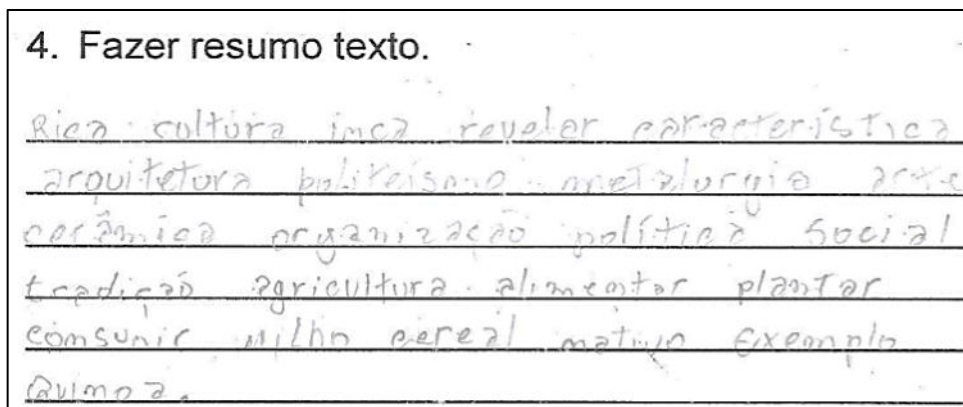 4. Fazer resumo texto.
Rica cultura inca revelar característica
arquitetura politeismo metalurgia arte
cerâmica organização política social
tradição agricultura alimentar plantar
consunir milho cereal nativo Exemplo
Quinoa.